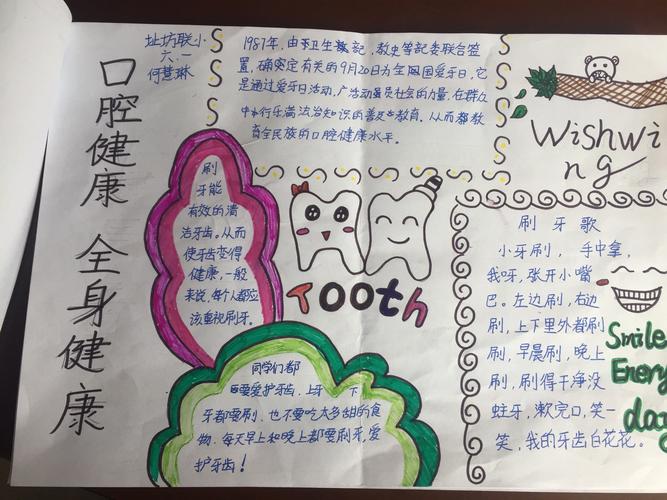 口腔健康 全身健康
址坊联小
六一
何慧琳
1987年,由 卫生 記,教史等記委联合签
置,确 定 有关的9月20日为全国 爱牙日,它
是通过爱牙日活动,广活动 员社会的力量,在群众
中 行乐满法治知识的 教育,从而 教
育全民族的口腔健康水平。
Wishwi
ng
刷
牙能
有效的清
洁牙齿。从而
使牙齿变得
健康,一般
来说,每个人都应
该重视刷牙。
Tooth
同学们都
要爱护牙齿,上牙 下
牙都要刷、也不要吃太多甜的食
物、每天早上和晚上都要刷牙,爱
护牙齿!
刷 牙 歌
小牙刷, 手中拿,
我呀,张开小嘴
巴。左边刷,右边
刷,上下里外都刷
刷,早晨刷,晚上
刷,刷得干净没
蛀牙,漱完口,笑一
笑,我的牙齿白花花。
Smile
Enery
day